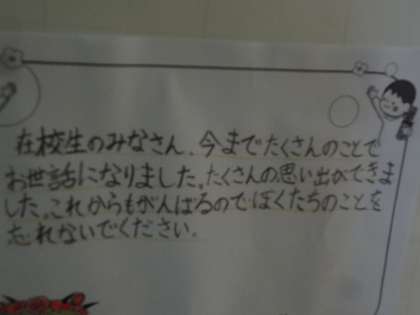 在校生のみなさん、今までたくさんのことで
お世話になりました。たくさんの思い出ができま
した。これからもがんばるのでぼくたちのことを
忘れないでください。